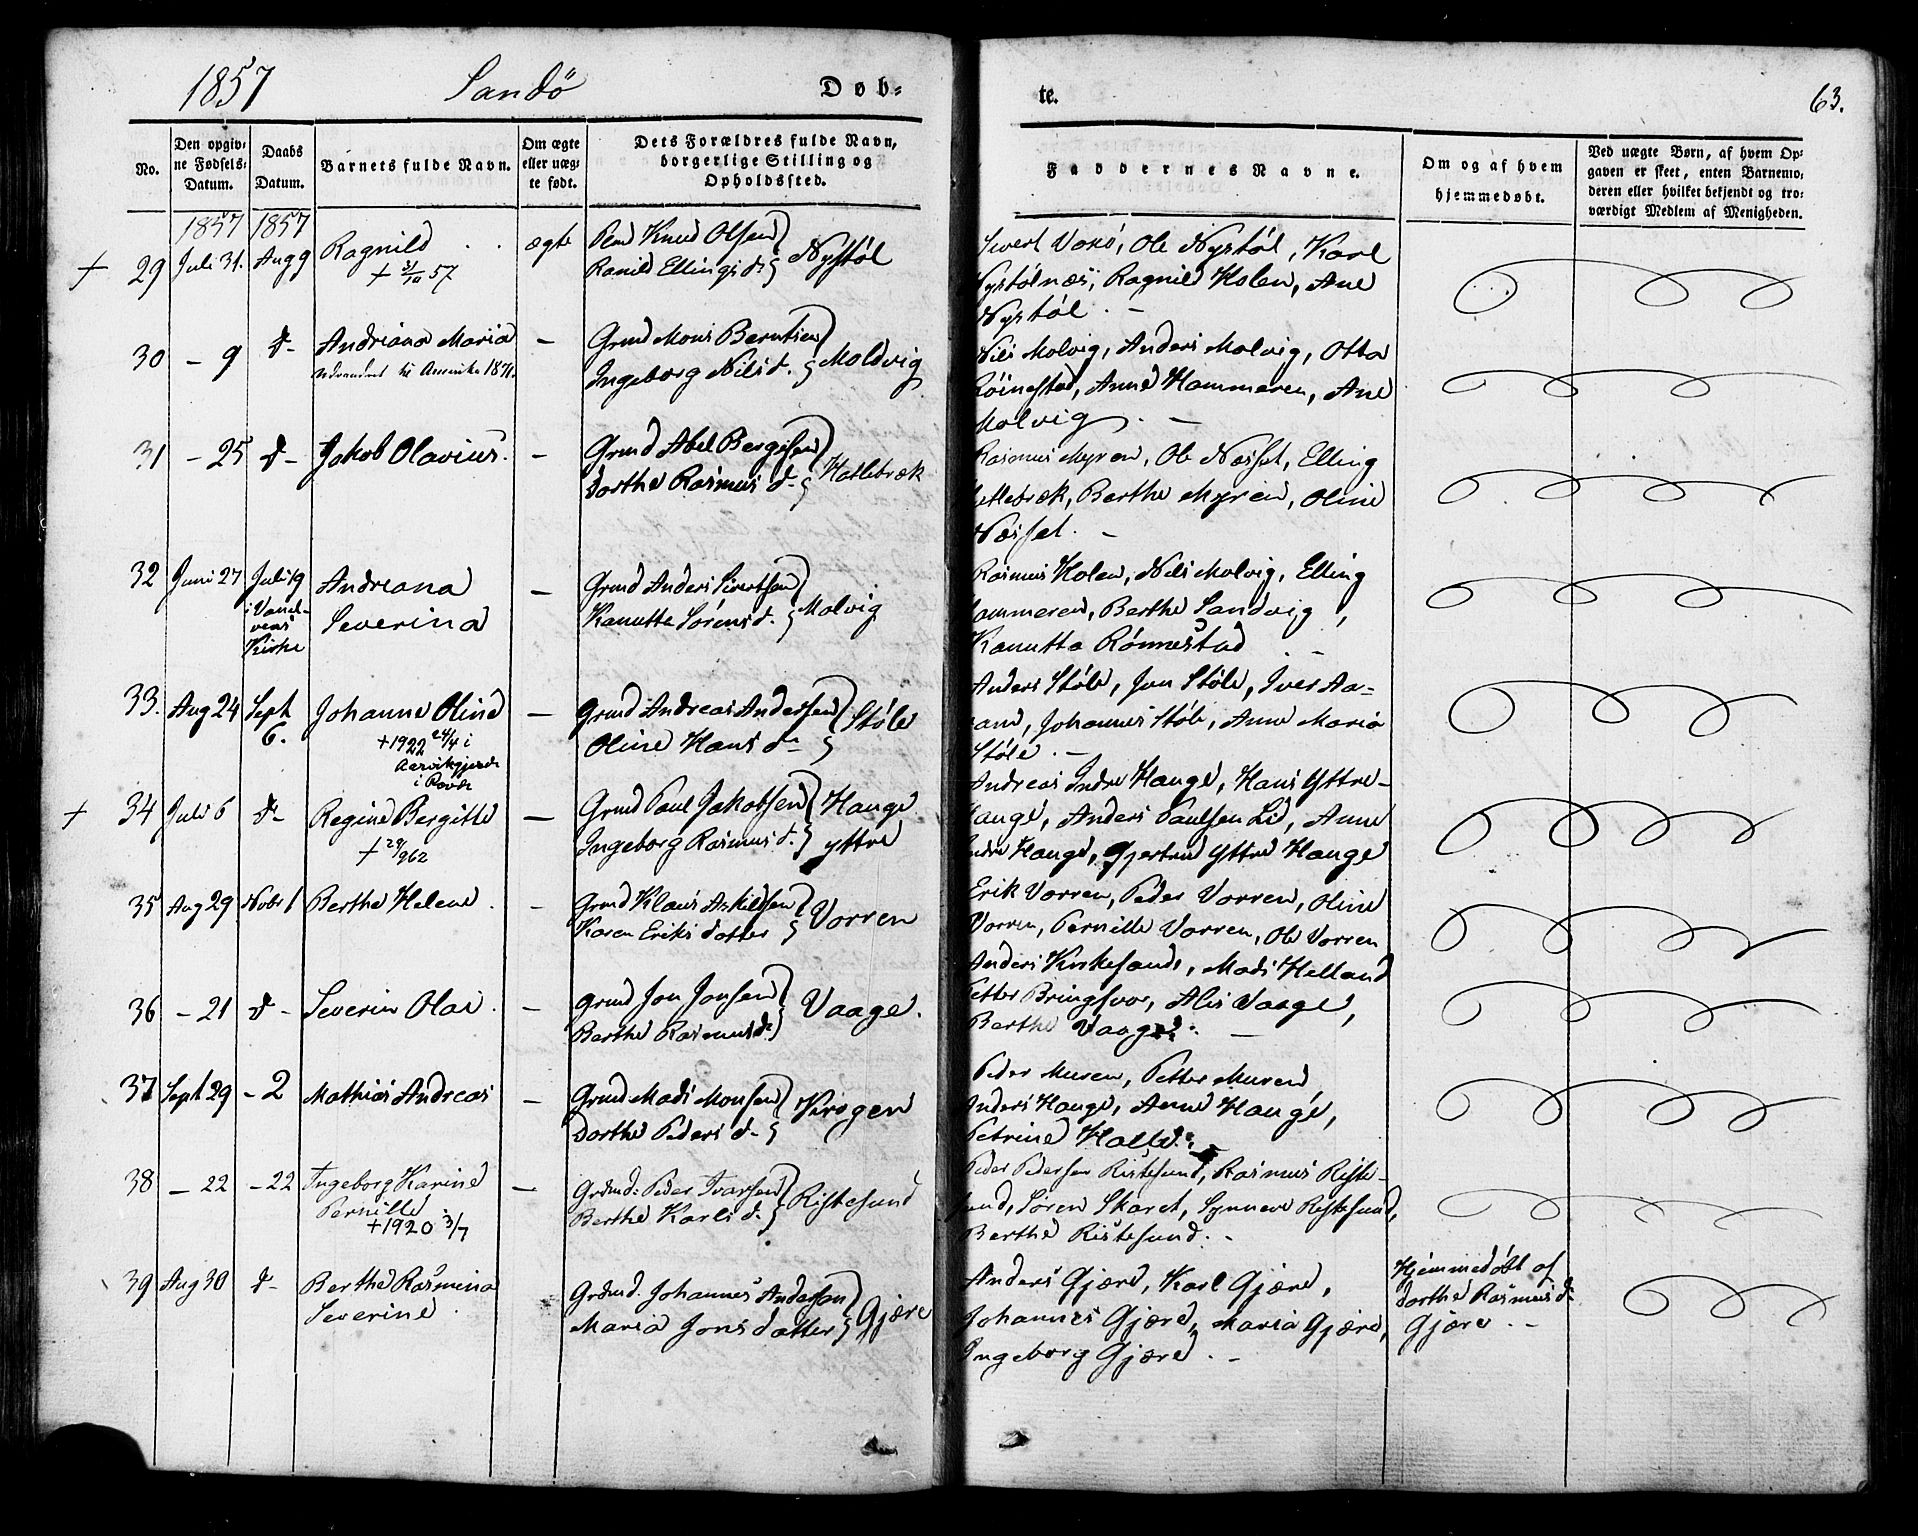 1857 Sandö Døb-
te. 63.
No.
Den opgiv-
ne Fødsels-
Datum.
Daabs
Datum.
Barnets fulde Navn.
Om ægte
eller uæg-
te født.
Dets Forældres fulde Navn,
borgerlige Stilling og
Opholdssted.
Faddernes Navne.
Om og af hvem
hjemmedøbt.
Ved uægte Børn, af hvem Op-
gaven er skeet, enten Barnemo-
deren eller hvilket bekjendt og tro-
værdigt Medlem af Menigheden.
1857 1857
+ 29 Juli 31. Aug 9 Ragnild ægte
+ 31/10 57
Knud Olsen
Ranild Ellings d. Nystøl
Sivert Voxö, Ole Nystøl, Karl
Nystølnæs, Ragnild Holen, Ane
Nystøl. -
30 - 9 d- Andriana Maria -
udvandret til Amerika 1871.
Grmd Mons Berntsen
Ingeborg Nils d. Moldvig
Nils Molvig, Anders Molvig, Otta
Röinestad, Anne Hammeren, Ane
Molvig. -
31 - 25 d- Jakob Olavius. -
Grmd Abel Bergesen
Dorthe Rasmus d- Hatlebræk
Rasmus Myren, Ole Næsset, Elling
Hatlebræk, Berthe Myren, Oline
Næsset. -
32 Juni 27 Juli 19 i Vanel-
vens
Kirke
Andreana
Severina -
Grmd Anders Sivertsen
Kanutte Sørens d. Molvig
Rasmus Holen, Nils Molvig, Elling
Hammeren, Berthe Sandvig,
Kanutta Rønnestad -
33. Aug 24 Sept
6.
Johanne Oline -
+ 1922 24/4 i
Aarvikgjerde
i Rovde
Grmd Andreas Andersen
Oline Hans d- Støle
Anders Støle, Jon Støle, Iver Aa-
land, Johannes Støle, Anne Maria
Støle. -
+ 34 Juli 6 d- Regine Bergitte -
+ 29/962
Grmd Paul Jakobsen
Ingeborg Rasmus d. Hauge
yttre
Andreas Indre Hauge, Hans Yttre-
Hauge, Anders Paulsen Lid, Anne
Indre Hauge, Gjertrud Yttre Hauge
35 Aug 29 Novbr 1 Berthe Helene. -
Grmd Klaus Askildsen
Karen Eriks datter Vorren
Erik Vorren, Peder Vorren, Oline
Vorren, Pernille Vorren, Ole Vorren
36 - 21 d- Severin Olai. -
Grmd Jon Jonsen
Berthe Rasmus d- Vaage.
Anders Kirkesande, Mads Helland
Petter Bringsvor, Alis Vaage,
Berthe Vaage. -
37 Sept 29 - 2 Mathias Andreas -
Grmd Mads Monsen
Dorthe Peders d- Krogen
Peder Muren, Petter Muren
Anders Hauge, Anne Hauge,
Petrine
38 - 22 - 22 Ingeborg Karine
Pernille -
+1920 3/7
Grdmd: Peder Ivarsen
Berthe Karls d. Ristesund
Peder Pedersen Ristesund, Rasmus Riste-
sund, Søren Skaret, Synneve Ristesund,
Berthe Ristesund. -
39 Aug 30 d- Berthe Rasmina
Severine.
Grdmd. Johannes Andersen
Maria Jons datter Gjære
Anders Gjære, Karl Gjære,
Johannes Gjære, Maria Gjære,
Ingeborg Gjære. -
Hjemmedøbt af
Dorthe Rasmus d-
Gjære. -